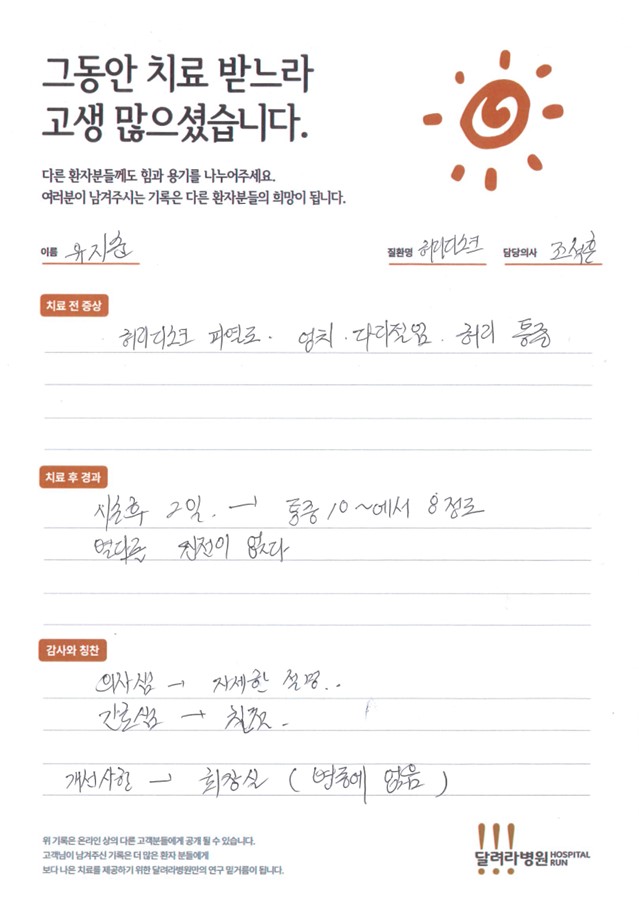 그동안 치료 받느라
고생 많으셨습니다.
다른 환자분들께도 힘과 용기를 나누어주세요.
여러분이 남겨주시는 기록은 다른 환자분들의 희망이 됩니다.
이름 유지훈 질환명 허리디스크 담당의사 조석훈
치료 전 증상
허리디스크 파열로. 엉치. 다리저림. 허리 통증
치료 후 경과
시술후 2일. → 통증 10~에서 8정도
별다른 진전이 없다
감사와 칭찬
의사쌤 → 자세한 설명..
간호쌤 → 친절.
개선사항 → 화장실 ( 병동에 없음 )
위 기록은 온라인 상의 다른 고객분들에게 공개 될 수 있습니다.
고객님이 남겨주신 기록은 더 많은 환자 분들에게
보다 나은 치료를 제공하기 위한 달려라병원만의 연구 밑거름이 됩니다.
달려라병원 HOSPITAL RUN